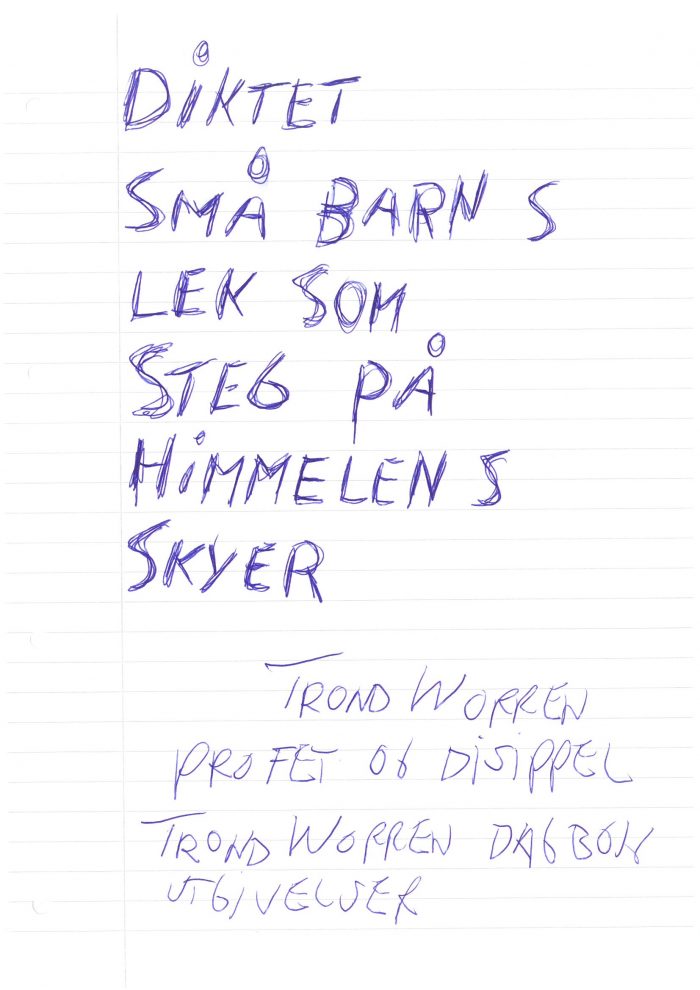 DIKTET
SMÅ BARN S
LEK SOM
STEG PÅ
HIMMELEN S
SKYER
TROND WORREN
PROFET OG DISIPPEL
TROND WORREN DAGBOK
UTGIVELSER